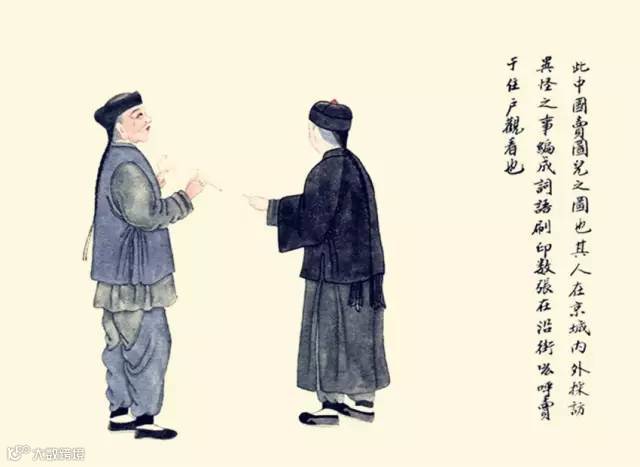 此中國賣圖兒之圖也其人在京城内外採訪
異怪之事編成詞語刷印数張在沿街吆呼賣
于住戶觀看也
大数跨境